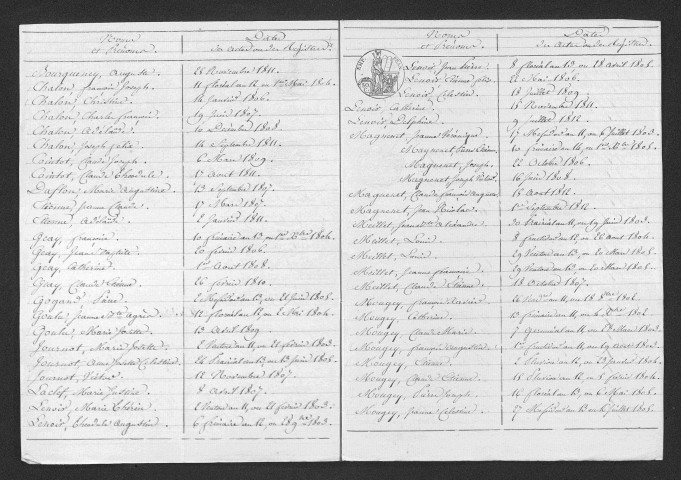 Noms et Prénoms.
Date des actes ou des Registres.
Bourquency, Auguste 28 Novembre 1811.
Chalon, françois Joseph 11 floréal an 12, ou 1er Mai 1804.
Chalon, Christine 14 Janvier 1806.
Chalon, Charles françois 29 Juin 1807.
Chalon, Adélaïde 10 Décembre 1808.
Chalon, Joseph félix 14 Septembre 1811.
Cointet, Claude Joseph 6 Mars 1809.
Cointet, Claude Théodule 17 Aout 1811.
Daflon, Marie Augustine 13 Septembre 1807.
Etienne, Jeanne Claude 17 Mars 1807.
Etienne, Adélaïde 2 Janvier 1811.
Geay, françoise 10 frimaire an 13, ou 1er Xbre 1804.
Geay, Jeanne Baptiste 20 février 1806.
Geay, Catherine 1er Aout 1808.
Geay, Claude Etienne 26 février 1810.
Gogand, Pierre 2 Messidor an 13, ou 21 Juin 1805.
Goulu, Jeanne Agnès 12 floréal an 12, ou 2 Mai 1804.
Goulu, Marie Josette 13 Avril 1809.
Journot, Marie Josette 2 Ventose an 11, ou 21 février 1803.
Journot, Anne Josette Célestine 24 Prairial an 13, ou 13 Juin 1805.
Journot, Victor 12 Novembre 1807.
Laclef, Marie Justine 8 Avril 1807.
Lenoir, Marie Thérèse 2 Ventose an 11, ou 21 février 1803.
Lenoir, Théodule Augustin 6 frimaire an 12, ou 28 9bre 1803.
Noms et Prénoms.
Date des actes ou des Registres.
Lenoir, Jean Pierre 8 floréal an 13, ou 28 Avril 1805.
Lenoir, Etienne 22 Mai 1806.
Lenoir, Célestin 18 Juillet 1809.
Lenoir, Catherine 18 Novembre 1811.
Lenoir, Delphine 9 Juillet 1812.
Magnenet, Jeanne Véronique 17 Messidor an 11, ou 6 Juillet 1803.
Magnenet, 10 frimaire an 14, ou 1er Xbre 1805.
Magnenet, Joseph 22 Octobre 1806.
Magnenet, Joseph Victor 16 Juin 1808.
Magnenet, Claude françois 15 Aout 1812.
Magnenet, Jean Nicolas 1er Septembre 1812.
Meillet, Alexandre 30 Prairial an 11, ou 19 Juin 1803.
Meillet, Louis 8 fructidor an 12, ou 26 Aout 1804.
Meillet, Louise 29 Ventose an 13, ou 20 Mars 1805.
Meillet, Jeanne françoise 29 Ventose an 13, ou 20 Mars 1805.
Meillet, Claude Etienne 18 Octobre 1807.
Mougey, françois Xavier
Mougey, Catherine 13 frimaire an 11, ou 4 Xbre 1802.
Mougey, Claude Marie 7 Germinal an 11, ou 28 Mars 1803.
Mougey, françois Augustin 1er fructidor an 11, ou 19 Aout 1803.
Mougey, Etienne 2 Pluviose an 12, ou 23 Janvier 1804.
Mougey, Claude Etienne 18 Pluviose an 12, ou 8 février 1804.
Mougey, Pierre Joseph 16 floréal an 13, ou 6 Mai 1805.
Mougey, Jeanne Célestine 17 Messidor an 13, ou 6 Juillet 1805.